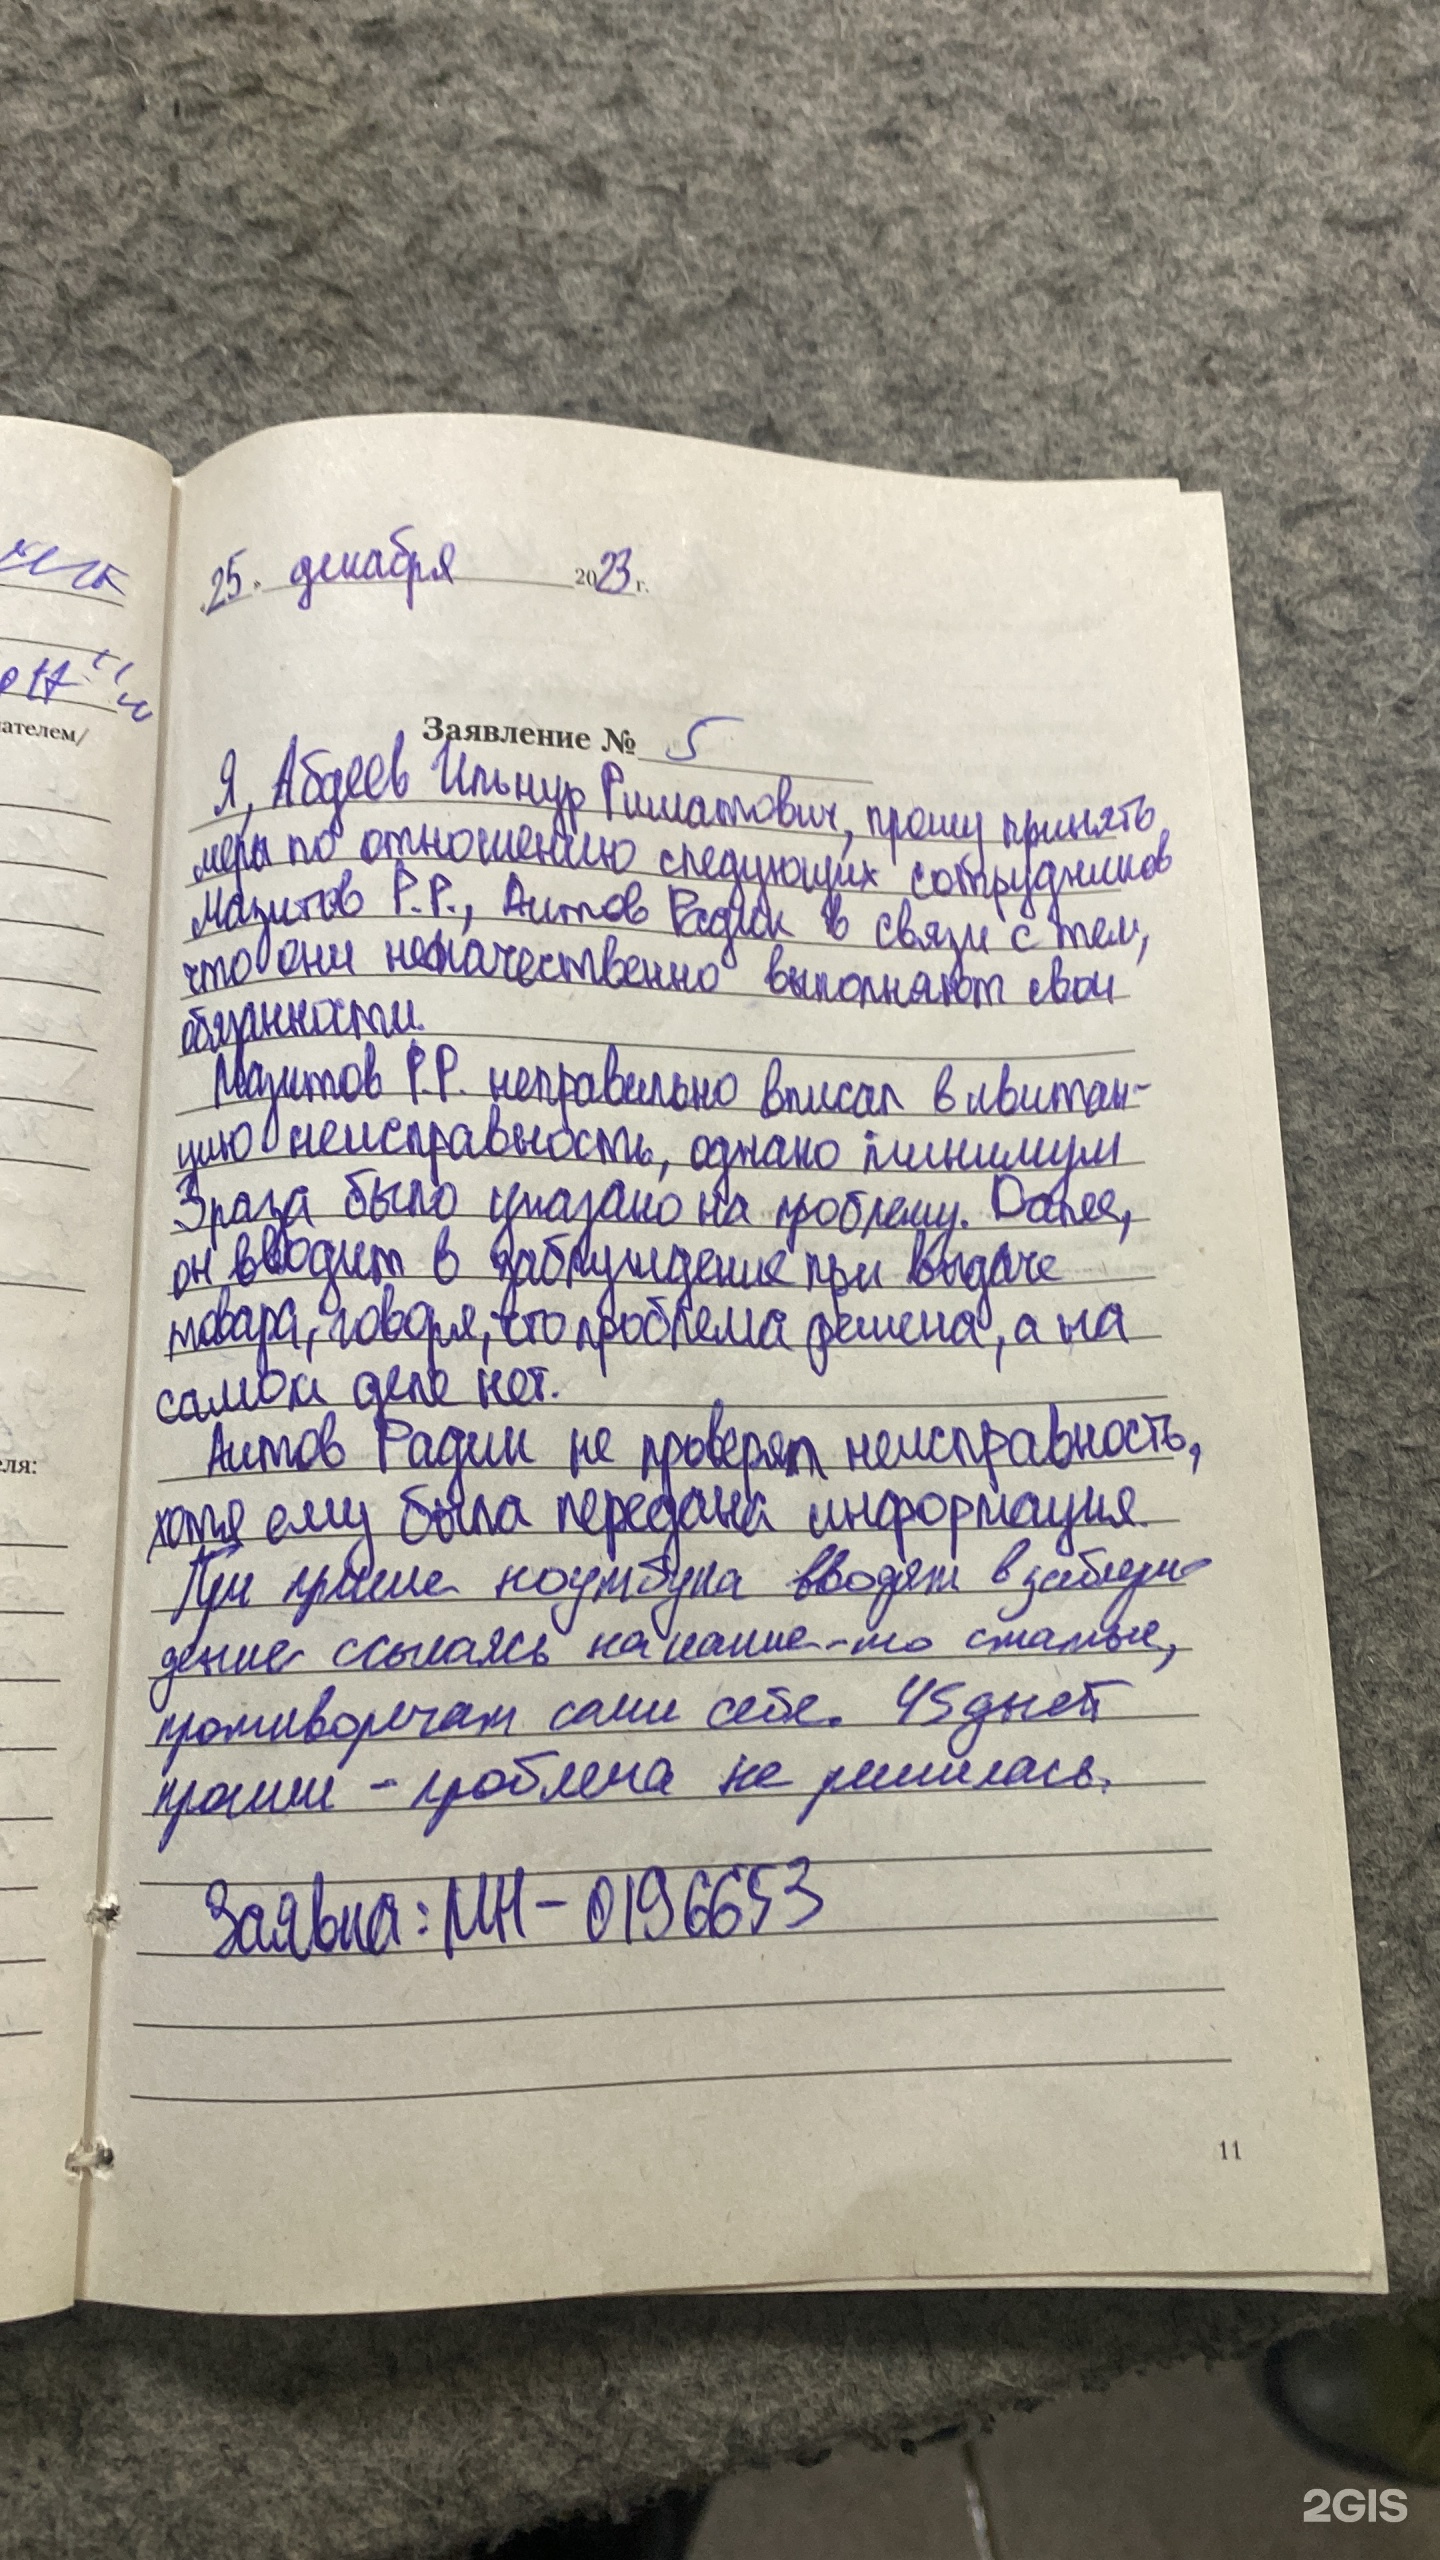 25 декабря 2023 г.
ателем/
еля:
Заявление № 5
Я, Абдеев Ильнур Риматович, прошу принять
меры по отношению следующих сотрудников
Мазитов Р.Р., Аитов Радик в связи с тем,
что они некачественно выполняют свои
обязанности.
Мазитов Р.Р. неправильно вписал в квитан-
цию неисправность, однако минимум
3 раза было указано на проблему. Далее,
он вводит в заблуждение при выдаче
товара, говоря, что проблема решена, а на
самом деле нет.
Аитов Радик не проверял неисправность,
хотя ему была передана информация.
При приеме ноутбука вводят в заблуж-
дение ссылаясь на какие-то статьи,
противоречат сами себе. 45 дней
прошли - проблема не решилась.
Заявка: МН-0196653
11
2GIS